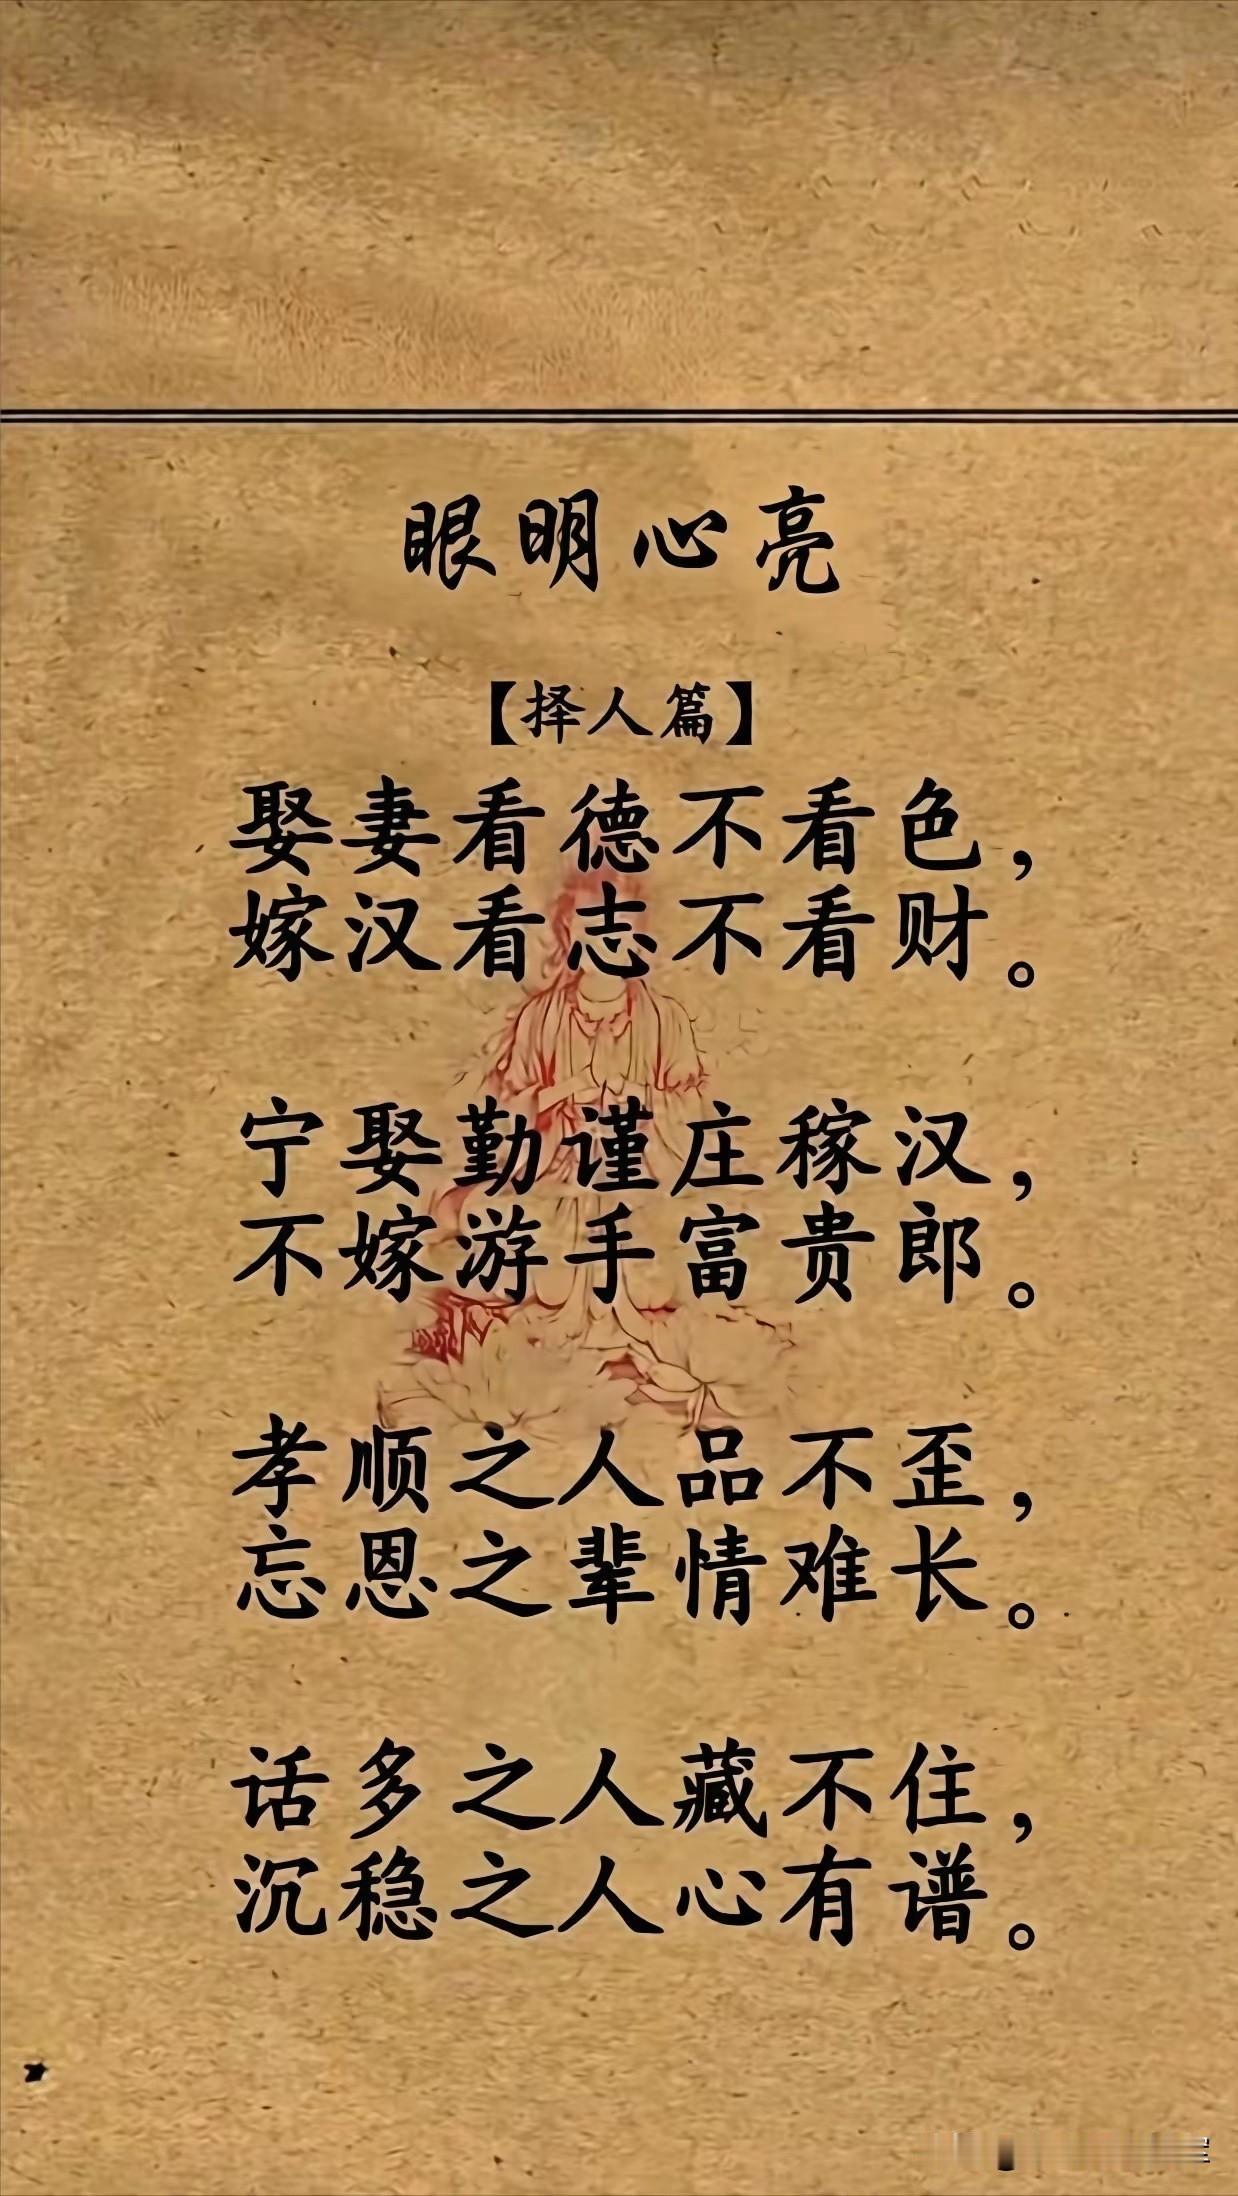 眼明心亮
【择人篇】
娶妻看德不看色，
嫁汉看志不看财。
宁娶勤谨庄稼汉，
不嫁游手富贵郎。
孝顺之人品不歪，
忘恩之辈情难长。
话多之人藏不住，
沉稳之人心有谱。